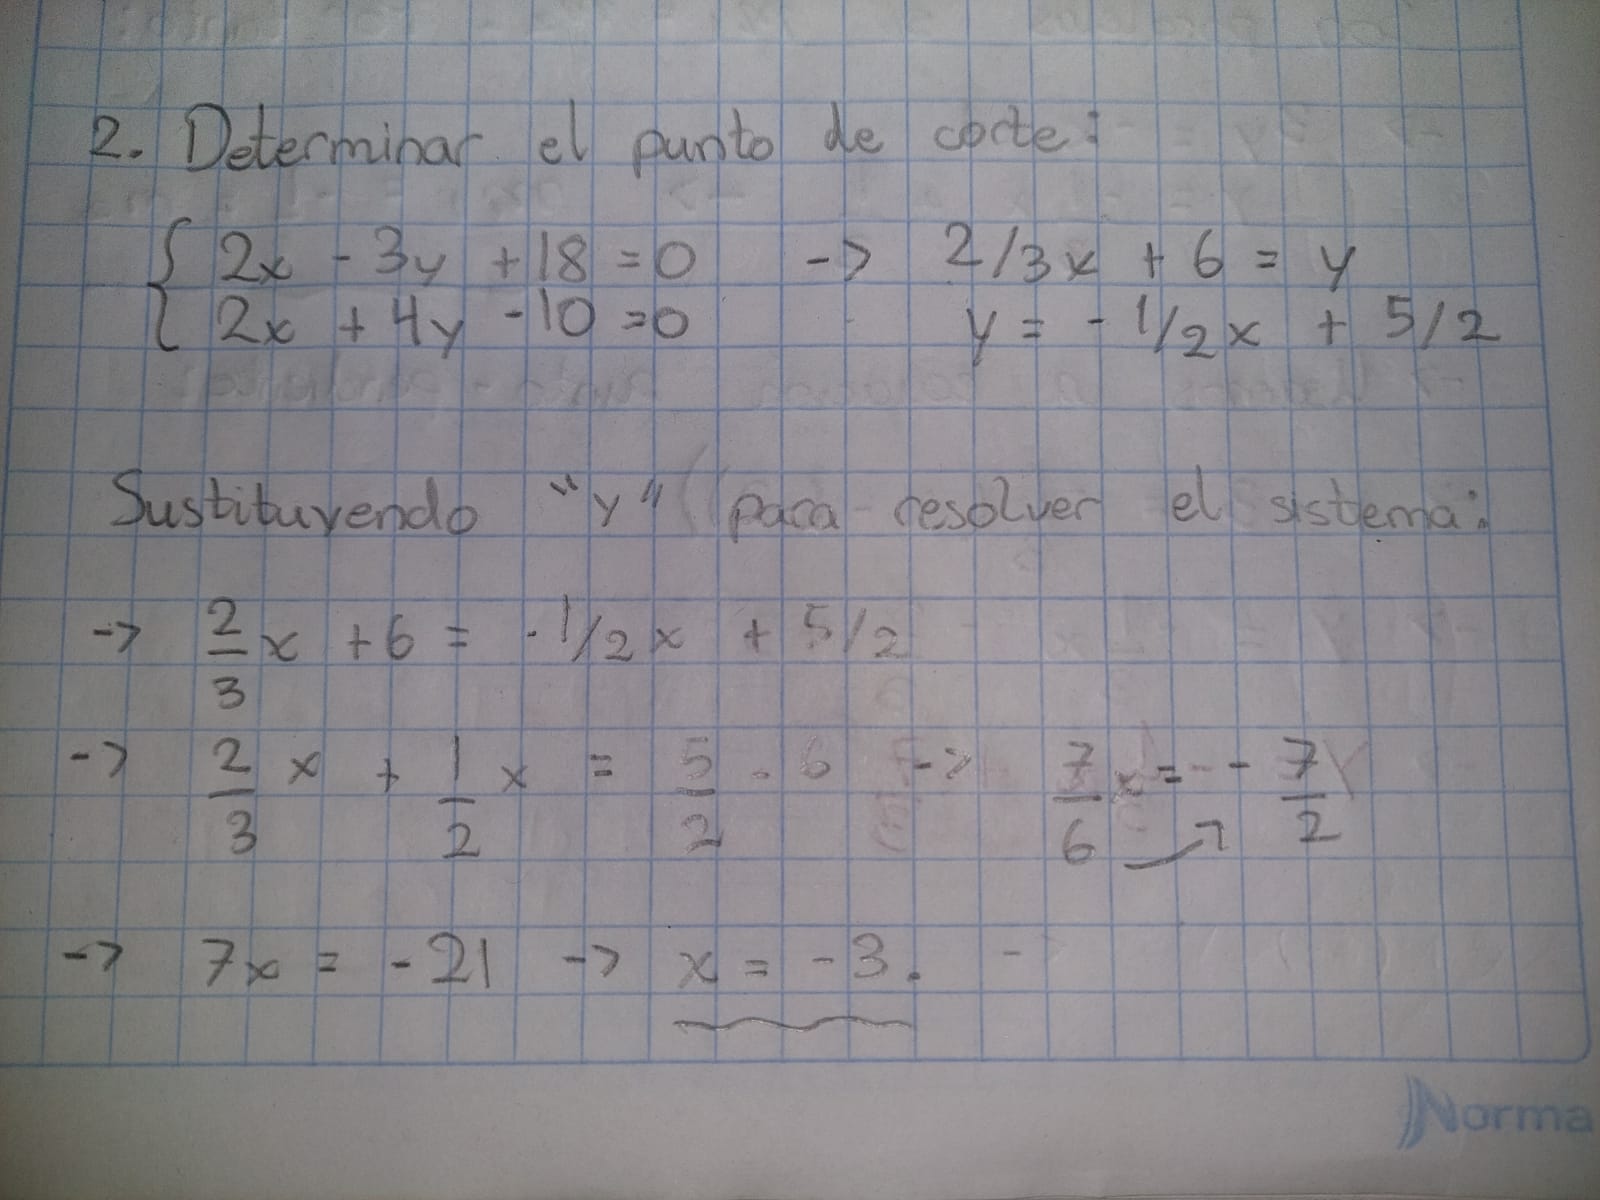 2. Determinar el punto de corte:
{ 2x - 3y + 18 = 0 -> 2/3x + 6 = y
2x + 4y - 10 = 0 y = - 1/2x + 5/2
Sustituyendo "y" para resolver el sistema:
-> 2/3 x + 6 = - 1/2 x + 5/2
-> 2/3 x + 1/2 x = 5/2 - 6 -> 7/6 x = - 7/2
-> 7x = - 21 -> x = - 3.
Norma